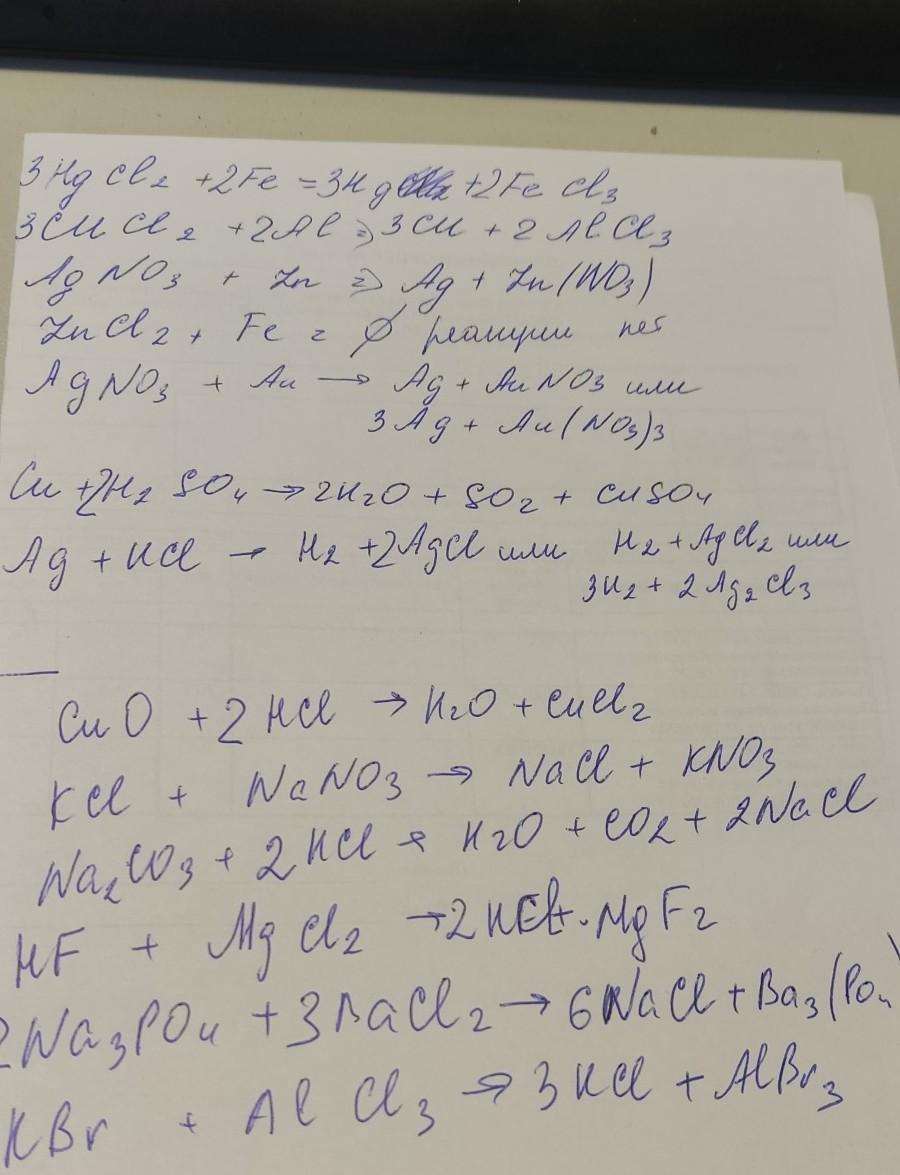 3HgCl2 +2Fe =3Hg +2FeCl3
3CuCl2 +2Al => 3Cu + 2AlCl3
AgNO3 + Zn => Ag + Zn(NO3)
ZnCl2 + Fe = ∅ реакции нет
AgNO3 + Au → Ag + AuNO3 или
3Ag + Au(NO3)3
Cu +2H2SO4 → 2H2O + SO2 + CuSO4
Ag + HCl → H2 +2AgCl или H2 + AgCl2 или
3H2 + 2Ag2Cl3
CuO + 2HCl → H2O + CuCl2
KCl + NaNO3 → NaCl + KNO3
Na2CO3 + 2HCl → H2O + CO2 + 2NaCl
HF + MgCl2 → 2HCl + MgF2
2Na3PO4 + 3BaCl2 → 6NaCl + Ba3(PO4)
KBr + AlCl3 → 3KCl + AlBr3